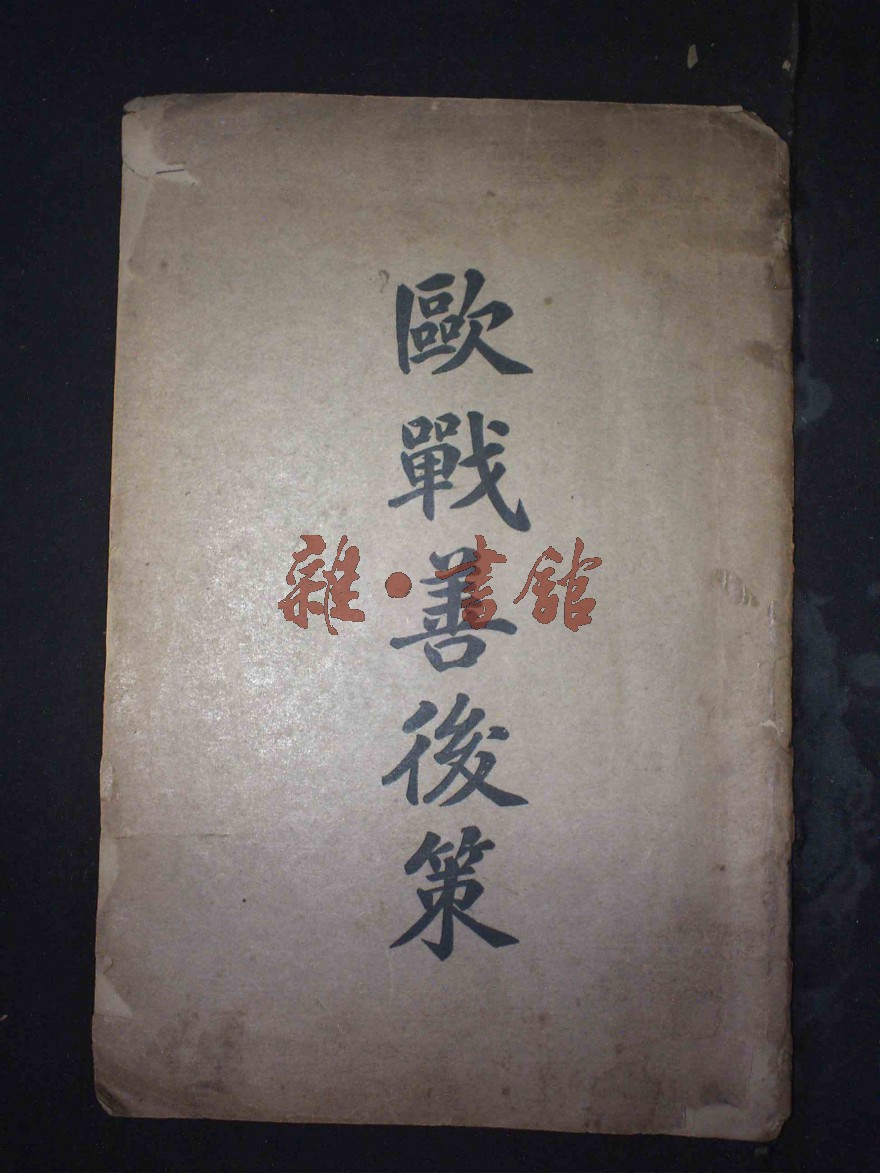 歐戰善後策
雜·書館